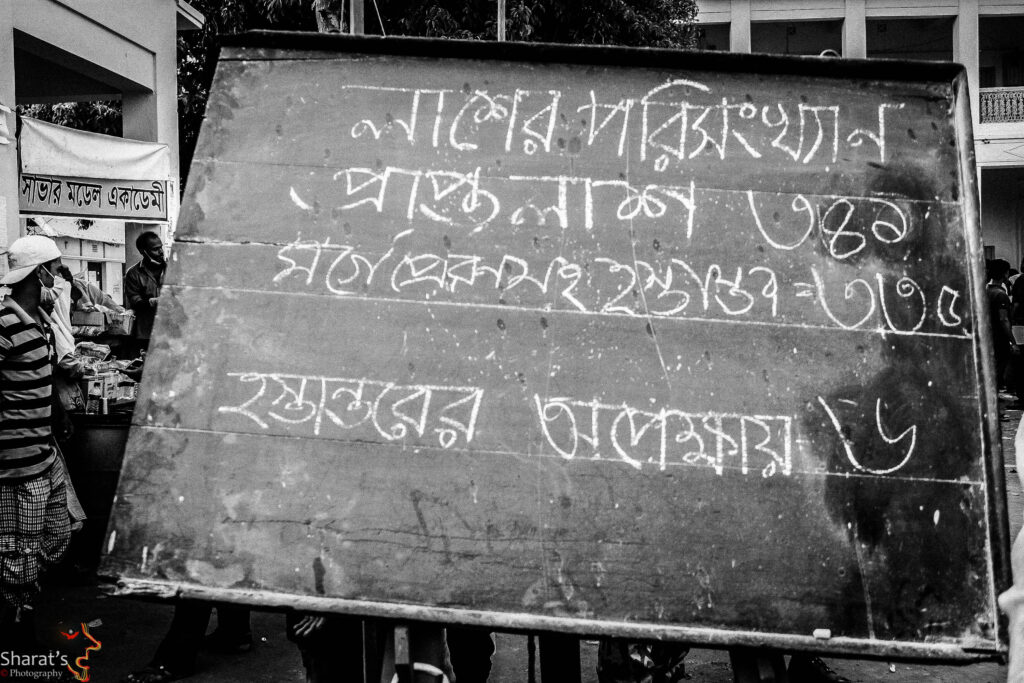 লাশের পরিসংখ্যান
প্রাপ্ত লাশ ৩৪১
মর্গে প্রেরনসহ হস্তান্তর = ৩৩৫
হস্তান্তরের অপেক্ষায় - ৬
সাভার মডেল একাডেমী
Sharat's
© Photography